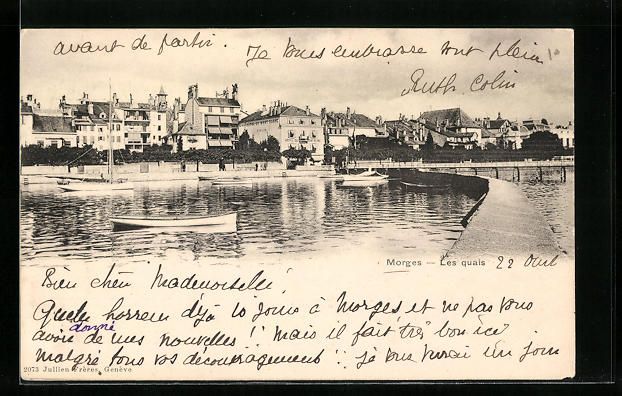 avant de partir. Je vous embrasse tout plein
Ruth Colin
Morges – Les quais 22 Avril
Bien chère Mademoiselle!
Quelle horreur déjà 10 jours à Morges et ne pas vous
avoir donné de mes nouvelles!! Mais il fait très bon ici
malgré tous vos découragements!! Je vous un jour
2073 Jullien Frères, Genève